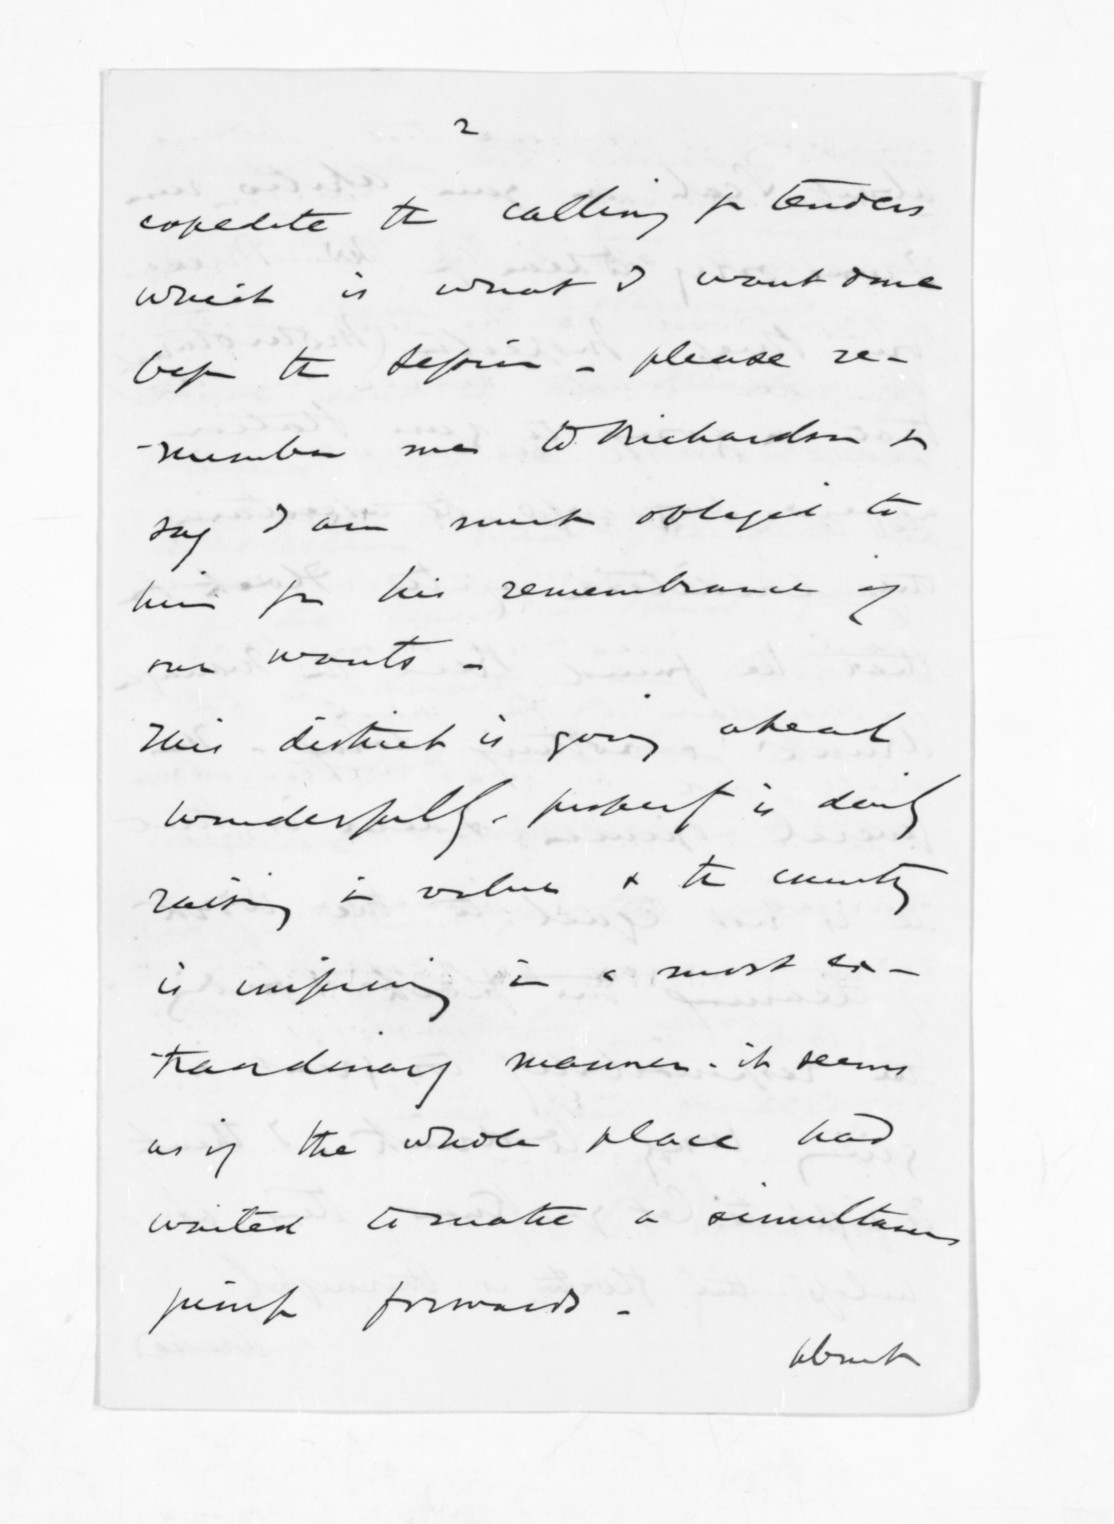 2
expedite the calling for tenders
which is what I want done
before the session - please re-
-member me to Richardson &
say I am much obliged to
him for his remembrance of
our wants -
This district is going ahead
wonderfully. property is daily
raising in value & the country
is improving in a most ex-
-traordinary manner. it seems
as if the whole place had
waited to make a simultaneous
jump forwards -
about